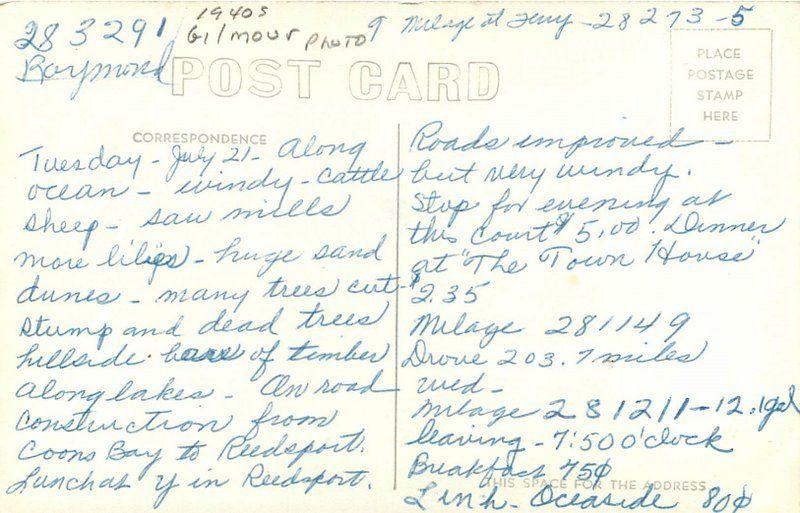 283291
Raymond
1940s
Gilmour PHOTO
9 Milage at Ferry - 28273-5
POST CARD
PLACE
POSTAGE
STAMP
HERE
CORRESPONDENCE
Tuesday - July 21 - Along
ocean - windy - cattle
sheep - saw mills
more lilies - huge sand
dunes - many trees cut -
stump and dead trees
hillside bare of timber
along lakes - On road
construction from
Coons Bay to Reedsport.
Lunch at Y in Reedsport.
Roads improved -
but very windy.
Stop for evening at
this court $5.00. Dinner
at "The Town House"
$2.35
Milage 281149
Drove 203.7 miles
wed -
milage 281211 - 12.1 gal
leaving - 7:50 o'clock
Breakfast 75¢
THIS SPACE FOR THE ADDRESS
Linh - Oceaside 80¢